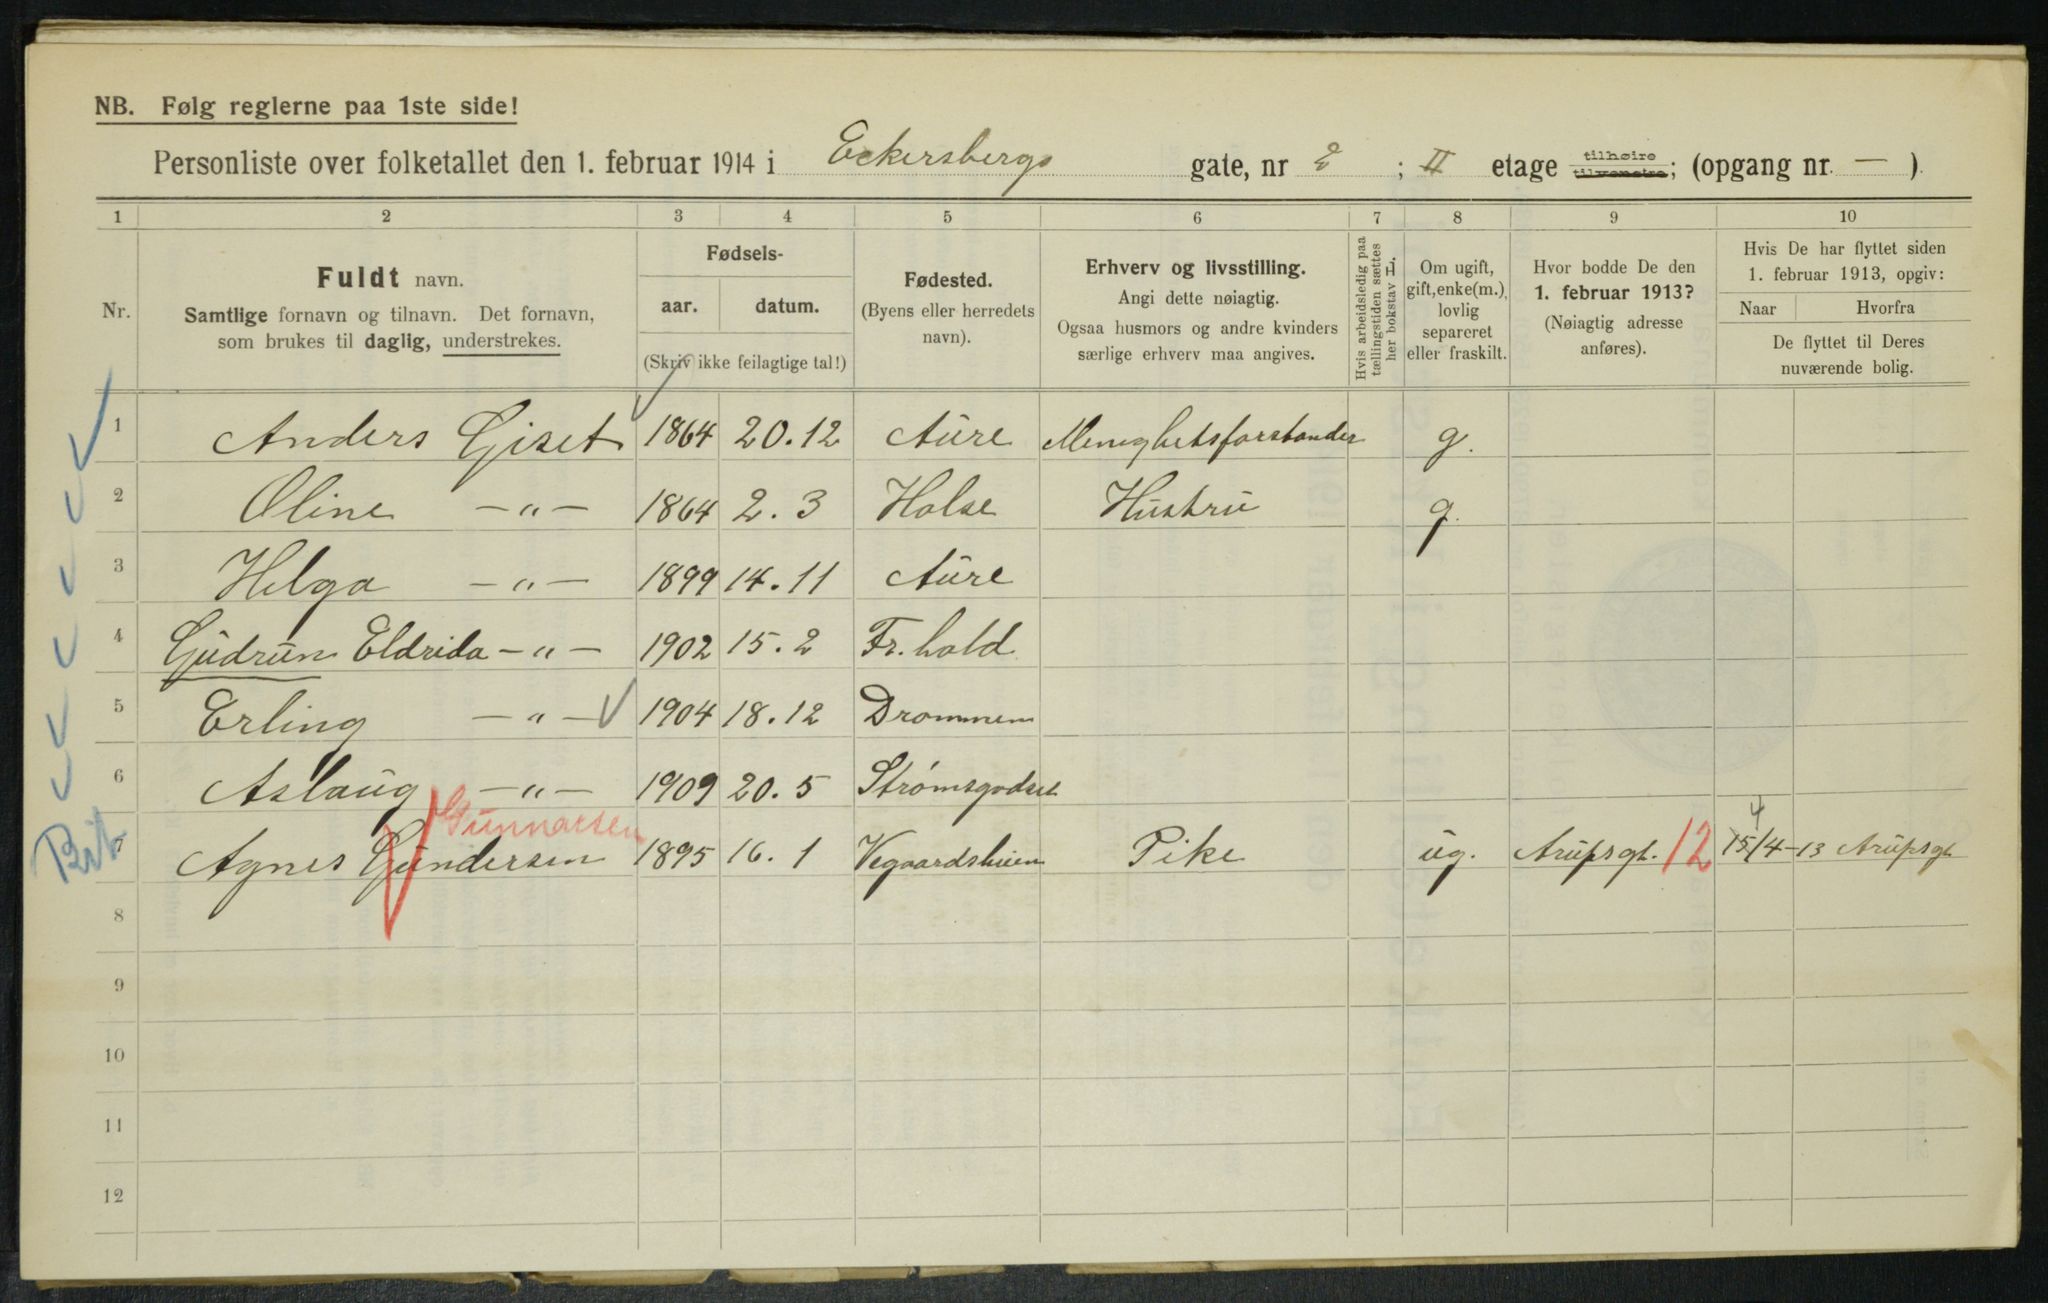 NB. Følg reglerne paa 1ste side!
Personliste over folketallet den 1. februar 1914 i Eckersbergs gate, nr 2 ; II etage tilhøire tilvenstre; (opgang nr. — ).
1 2 3 4 5 6 7 8 9 10
Nr.
Fuldt navn.
Samtlige fornavn og tilnavn. Det fornavn,
som brukes til daglig, understrekes.
Fødsels-
aar. datum.
(Skriv ikke feilagtige tal!)
Fødested.
(Byens eller herredets
navn).
Erhverv og livsstilling.
Angi dette nøiagtig.
Ogsaa husmors og andre kvinders
særlige erhverv maa angives.
Hvis arbeidsledig paa
tællingstiden sættes
her bokstav L.
Om ugift,
gift, enke(m.),
lovlig
separeret
eller fraskilt.
Hvor bodde De den
1. februar 1913?
(Nøiagtig adresse
anføres).
Hvis De har flyttet siden
1. februar 1913, opgiv:
Naar Hvorfra
De flyttet til Deres
nuværende bolig.
1 Anders Giset 1864 20.12 Aure Menighetsforstander g.
2 Oline —"— 1864 2.3 Halse Hustru g.
3 Helga —"— 1899 14.11 Aure
4 Gudrun Eldrida —"— 1902 15.2 Fr.hald
5 Erling —"— 1904 18.12 Drammen
6 Aslaug —"— 1909 20.5 Strømsgodset
Gunnarsen
7 Agnes Gundersen 1895 16.1 Vegaardsheien Pike ug. Arupsgt. 12 15/4-13 Arupsgt
8
9
10
11
12